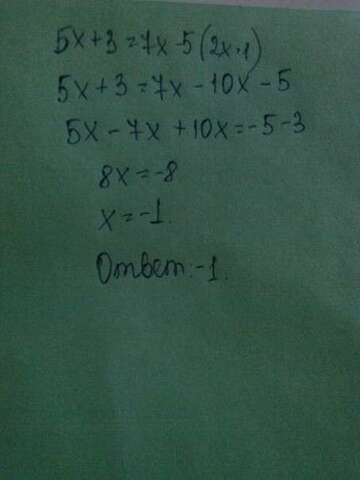 5x+3=7x-5(2x+1)
5x+3=7x-10x-5
5x-7x+10x=-5-3
8x=-8
x=-1.
Ответ:-1.